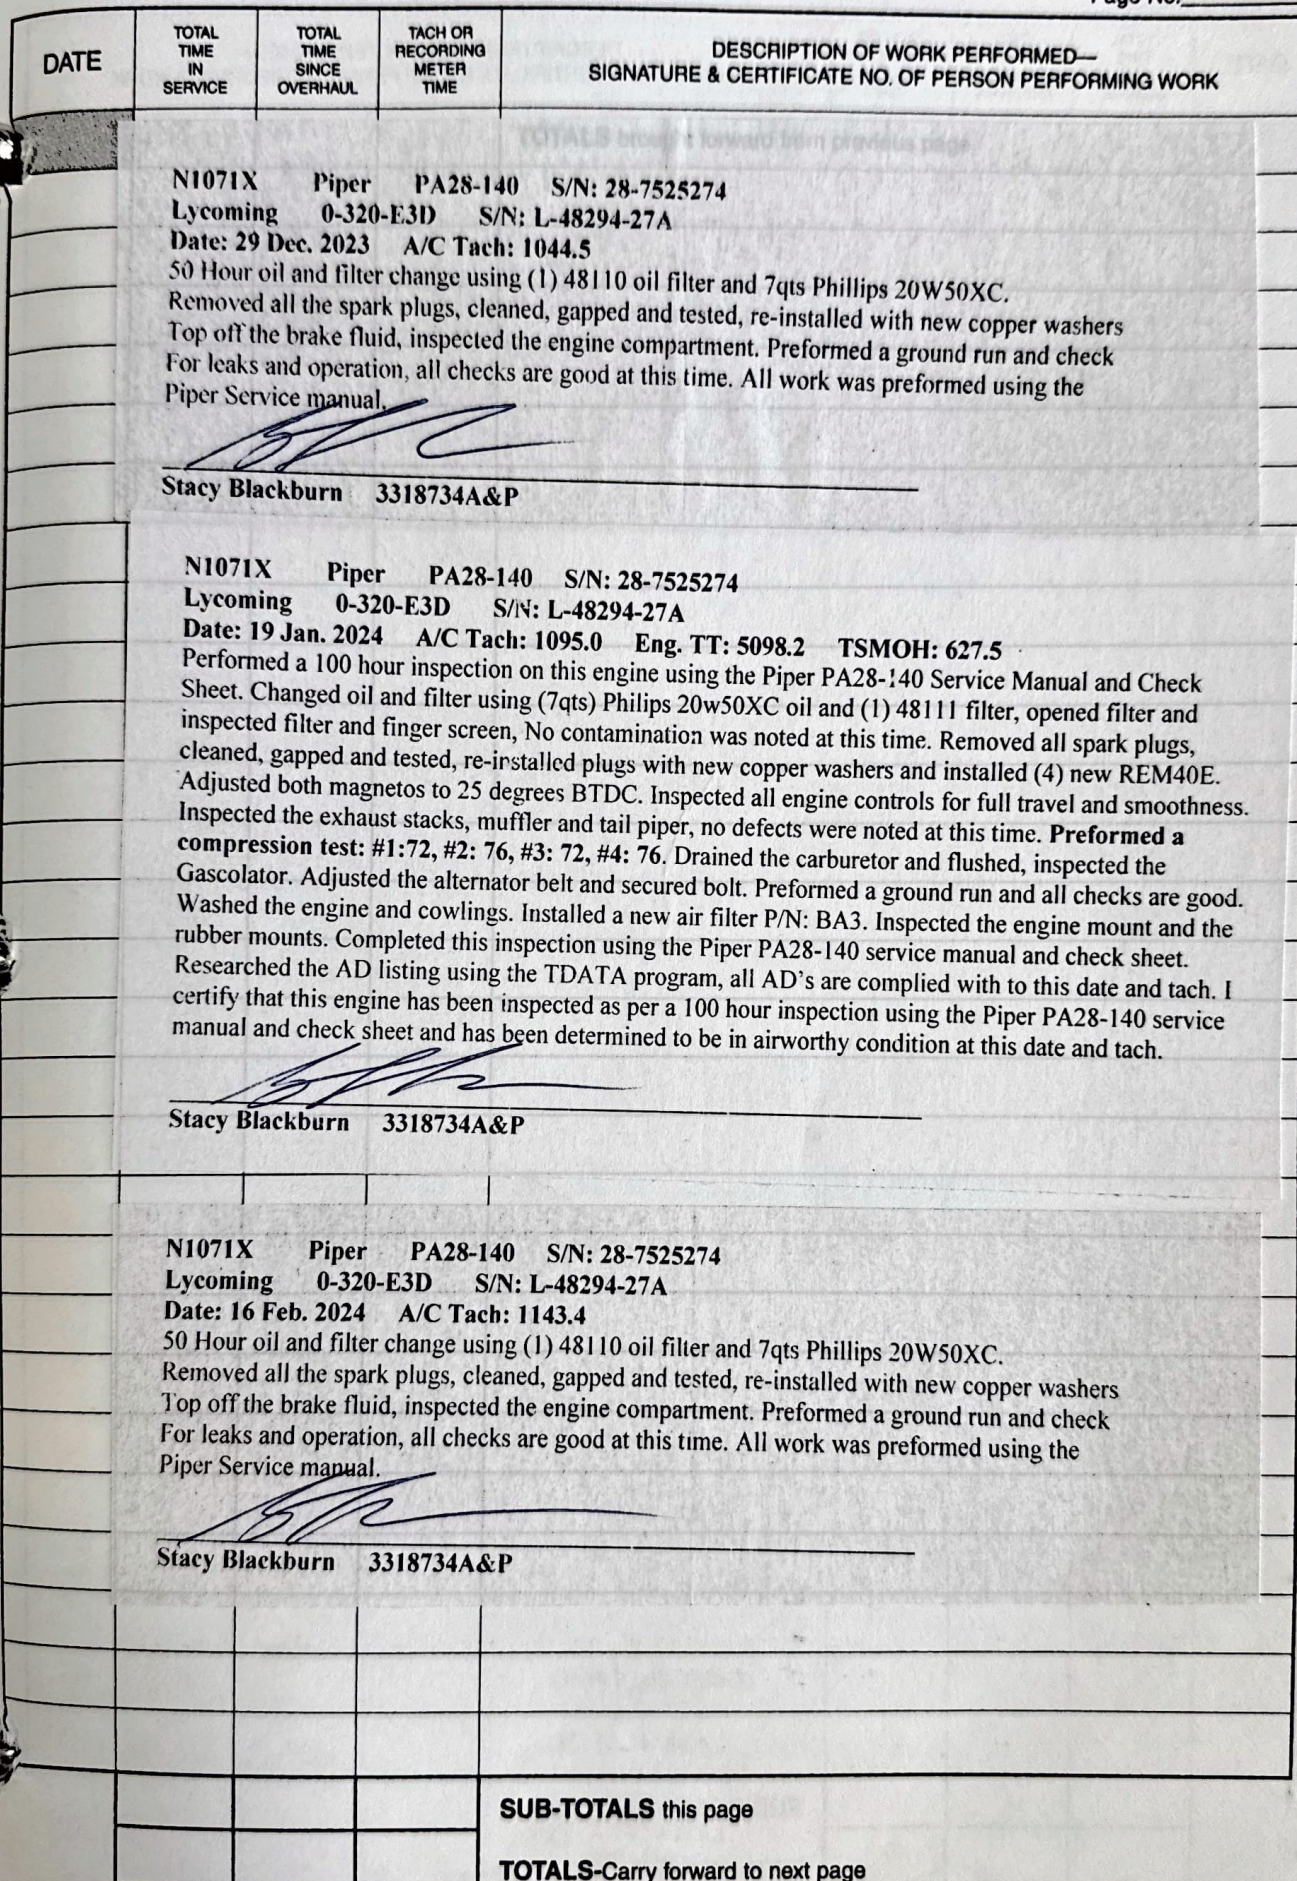 DATE
TOTAL TIME IN SERVICE
TOTAL TIME SINCE OVERHAUL
TACH OR RECORDING METER TIME
DESCRIPTION OF WORK PERFORMED—
SIGNATURE & CERTIFICATE NO. OF PERSON PERFORMING WORK
TOTALS brought forward from previous page
N1071X Piper PA28-140 S/N: 28-7525274
Lycoming 0-320-E3D S/N: L-48294-27A
Date: 29 Dec. 2023 A/C Tach: 1044.5
50 Hour oil and filter change using (1) 48110 oil filter and 7qts Phillips 20W50XC.
Removed all the spark plugs, cleaned, gapped and tested, re-installed with new copper washers
Top off the brake fluid, inspected the engine compartment. Preformed a ground run and check
For leaks and operation, all checks are good at this time. All work was preformed using the
Piper Service manual.
Stacy Blackburn 3318734A&P
N1071X Piper PA28-140 S/N: 28-7525274
Lycoming 0-320-E3D S/N: L-48294-27A
Date: 19 Jan. 2024 A/C Tach: 1095.0 Eng. TT: 5098.2 TSMOH: 627.5
Performed a 100 hour inspection on this engine using the Piper PA28-140 Service Manual and Check
Sheet. Changed oil and filter using (7qts) Philips 20w50XC oil and (1) 48111 filter, opened filter and
inspected filter and finger screen, No contamination was noted at this time. Removed all spark plugs,
cleaned, gapped and tested, re-installed plugs with new copper washers and installed (4) new REM40E.
Adjusted both magnetos to 25 degrees BTDC. Inspected all engine controls for full travel and smoothness.
Inspected the exhaust stacks, muffler and tail piper, no defects were noted at this time. Preformed a
compression test: #1:72, #2: 76, #3: 72, #4: 76. Drained the carburetor and flushed, inspected the
Gascolator. Adjusted the alternator belt and secured bolt. Preformed a ground run and all checks are good.
Washed the engine and cowlings. Installed a new air filter P/N: BA3. Inspected the engine mount and the
rubber mounts. Completed this inspection using the Piper PA28-140 service manual and check sheet.
Researched the AD listing using the TDATA program, all AD's are complied with to this date and tach. I
certify that this engine has been inspected as per a 100 hour inspection using the Piper PA28-140 service
manual and check sheet and has been determined to be in airworthy condition at this date and tach.
Stacy Blackburn 3318734A&P
N1071X Piper PA28-140 S/N: 28-7525274
Lycoming 0-320-E3D S/N: L-48294-27A
Date: 16 Feb. 2024 A/C Tach: 1143.4
50 Hour oil and filter change using (1) 48110 oil filter and 7qts Phillips 20W50XC.
Removed all the spark plugs, cleaned, gapped and tested, re-installed with new copper washers
Top off the brake fluid, inspected the engine compartment. Preformed a ground run and check
For leaks and operation, all checks are good at this time. All work was preformed using the
Piper Service manual.
Stacy Blackburn 3318734A&P
SUB-TOTALS this page
TOTALS-Carry forward to next page